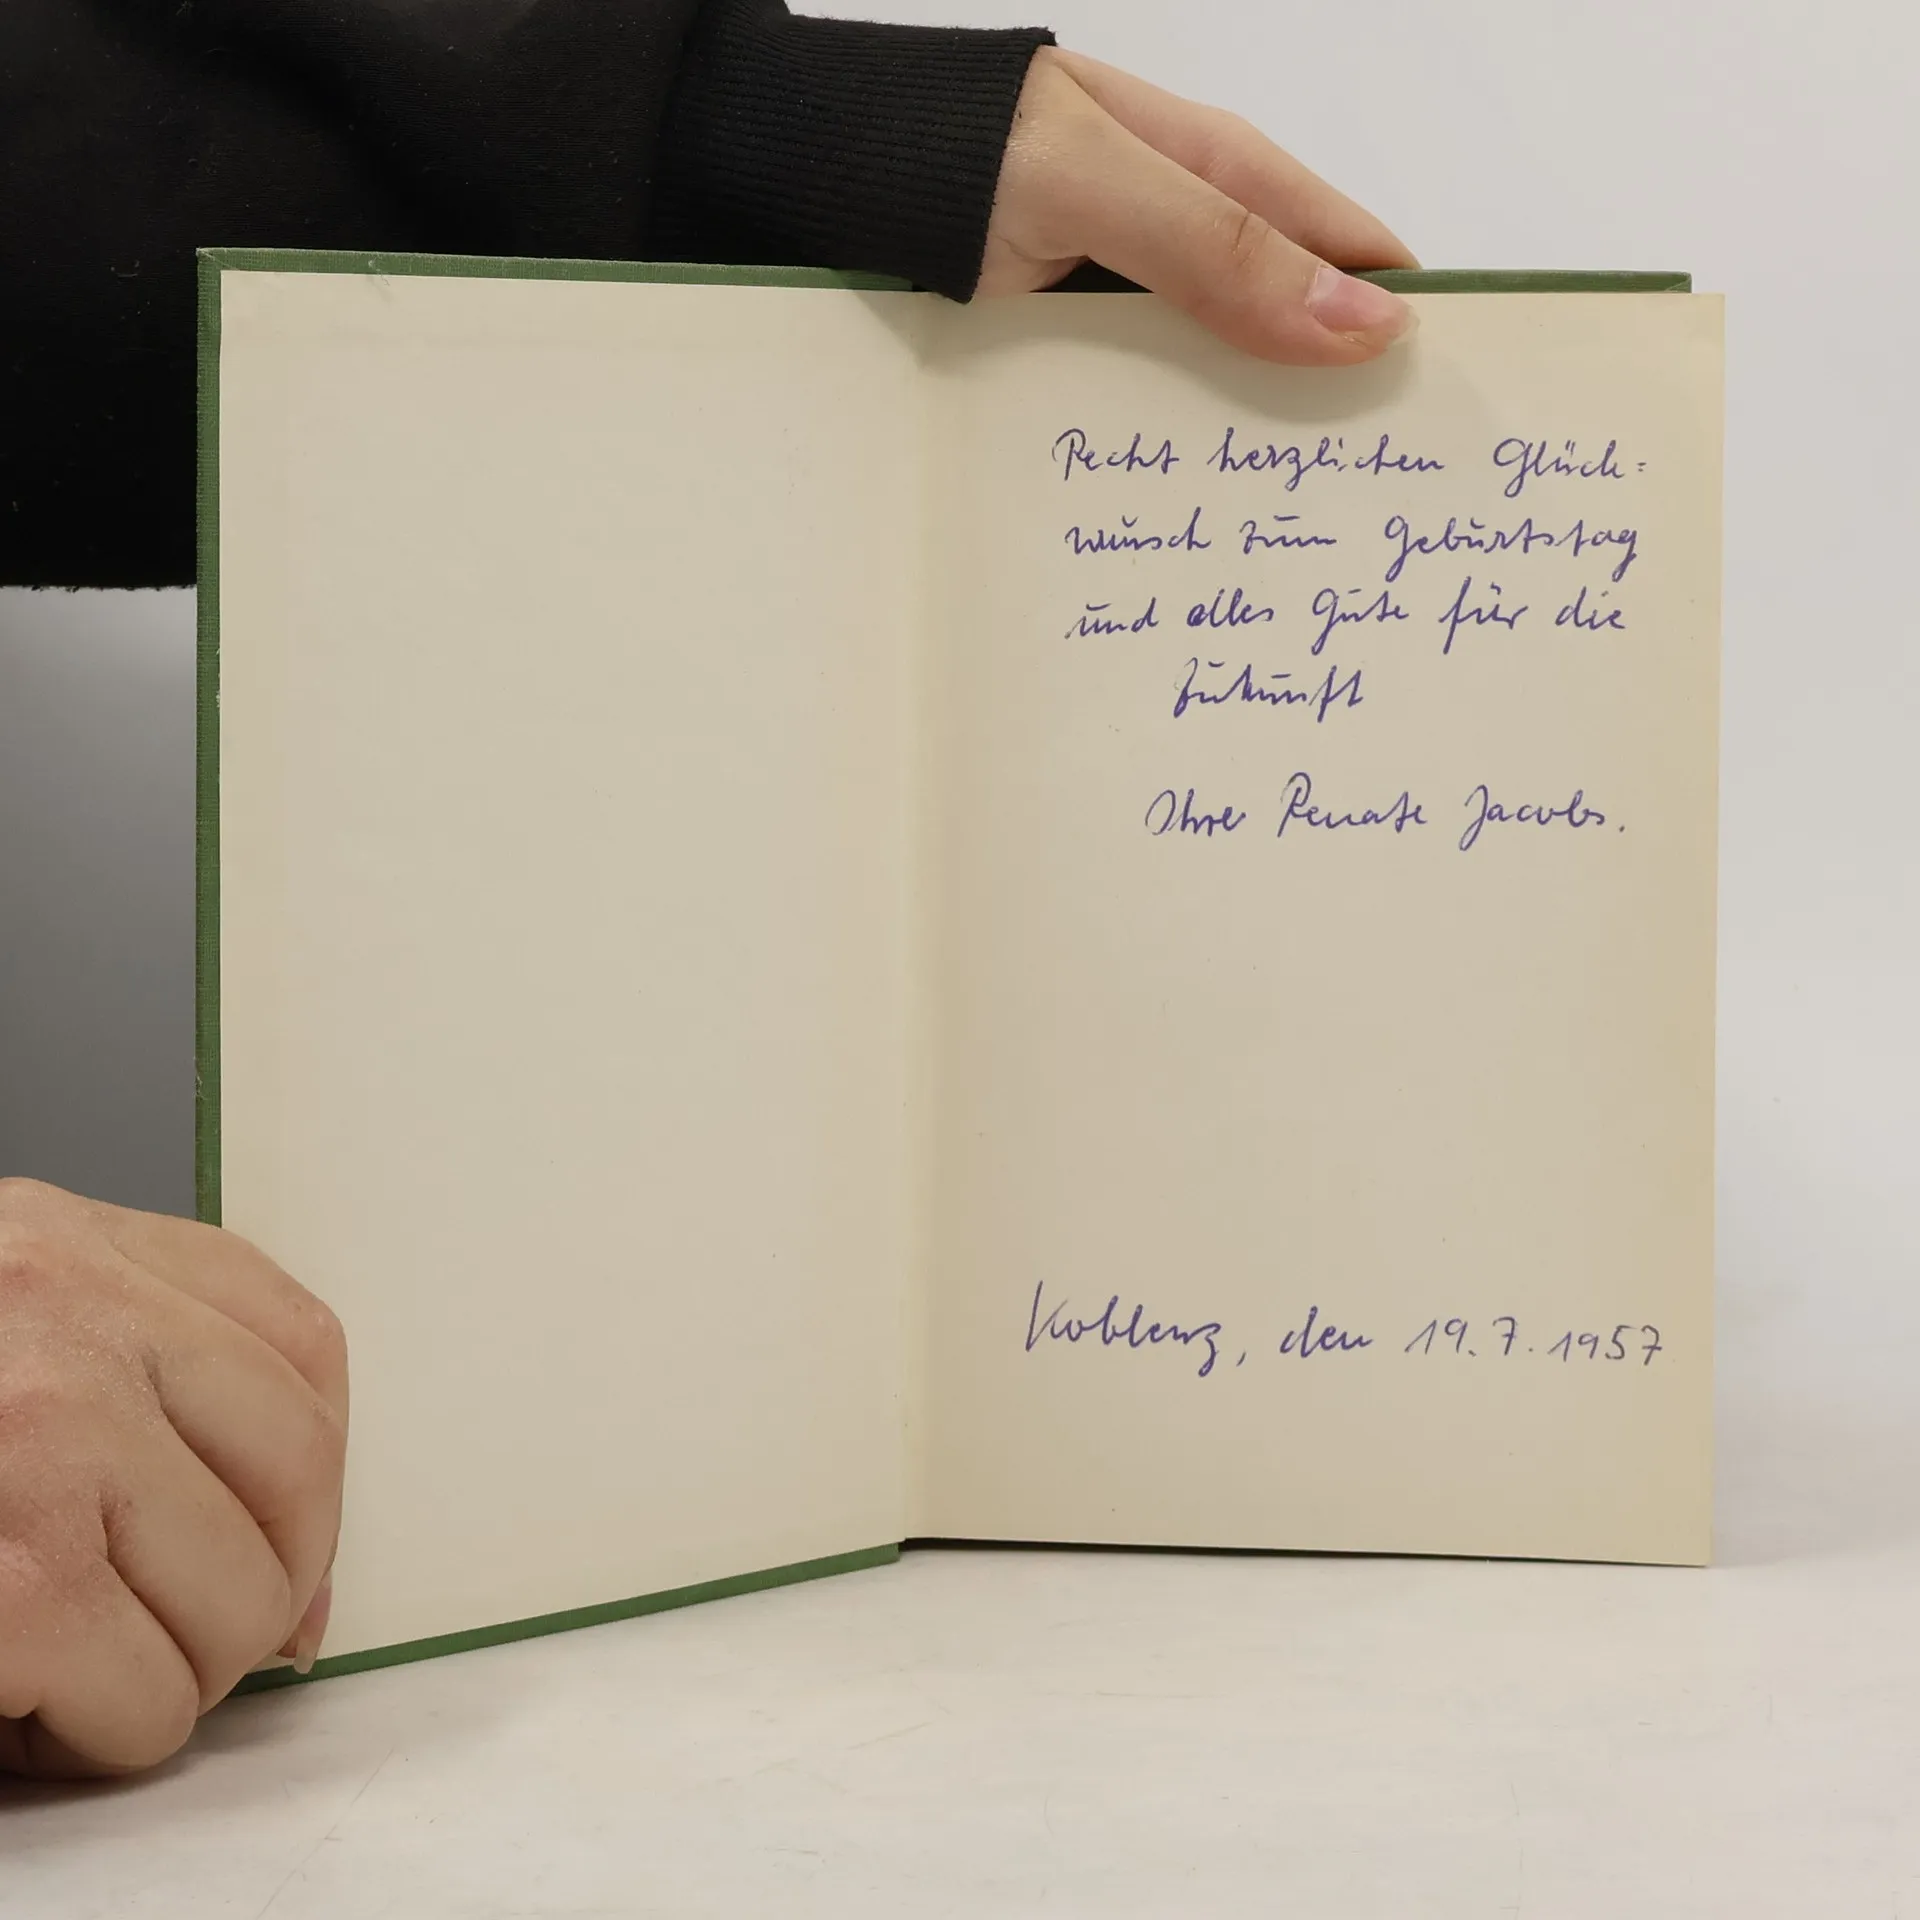 Recht herzlichen Glück=
wunsch zum Geburtstag
und alles Gute für die
Zukunft
Ihre Renate Jacobs.
Koblenz, den 19.7.1957